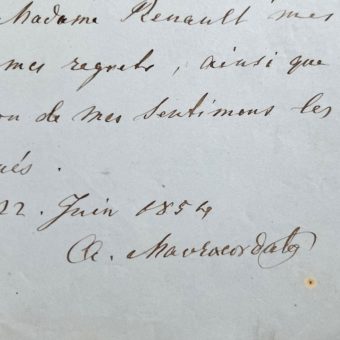 Madame Renault mes
mes regrets, ainsi que
on de mes sentimens les
ués.
22. Juin 1854
A. Mavrocordato